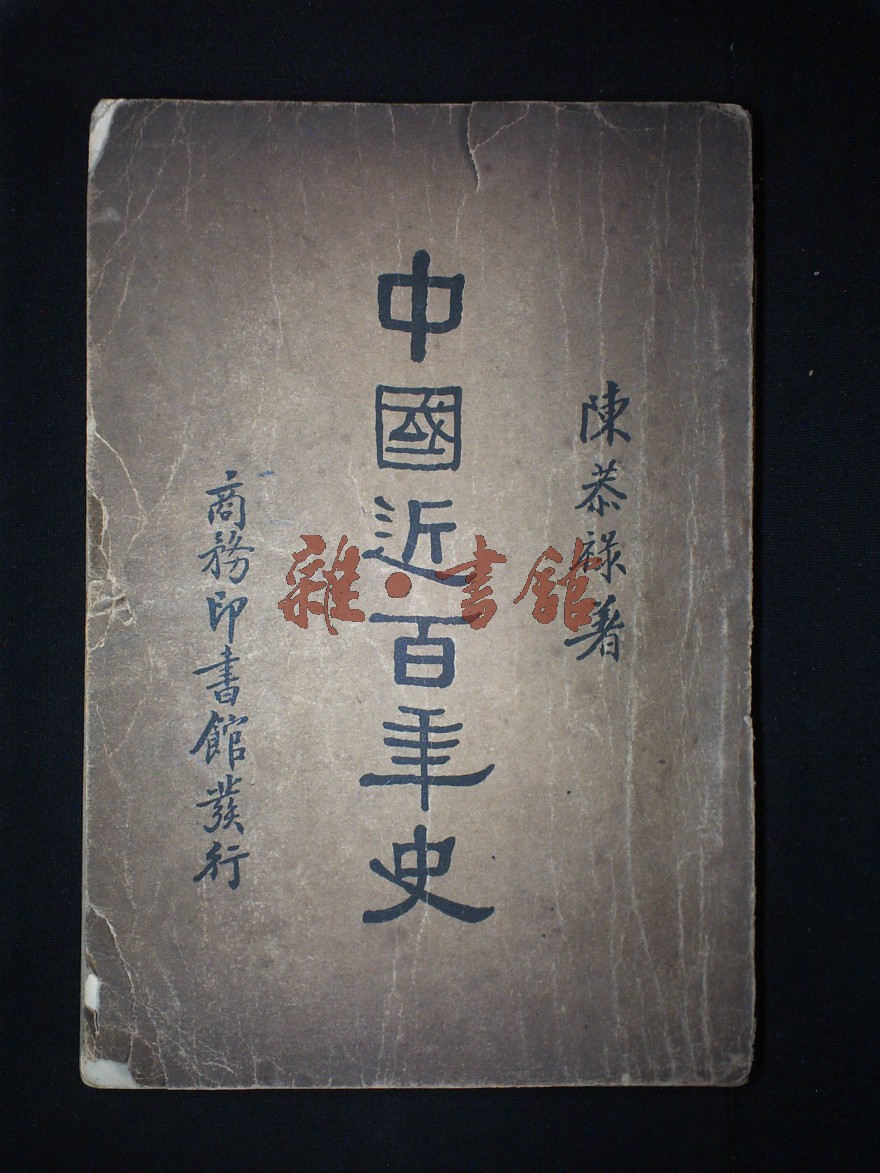 陳恭祿著
中國近百年史
商務印書館發行
雜·書館